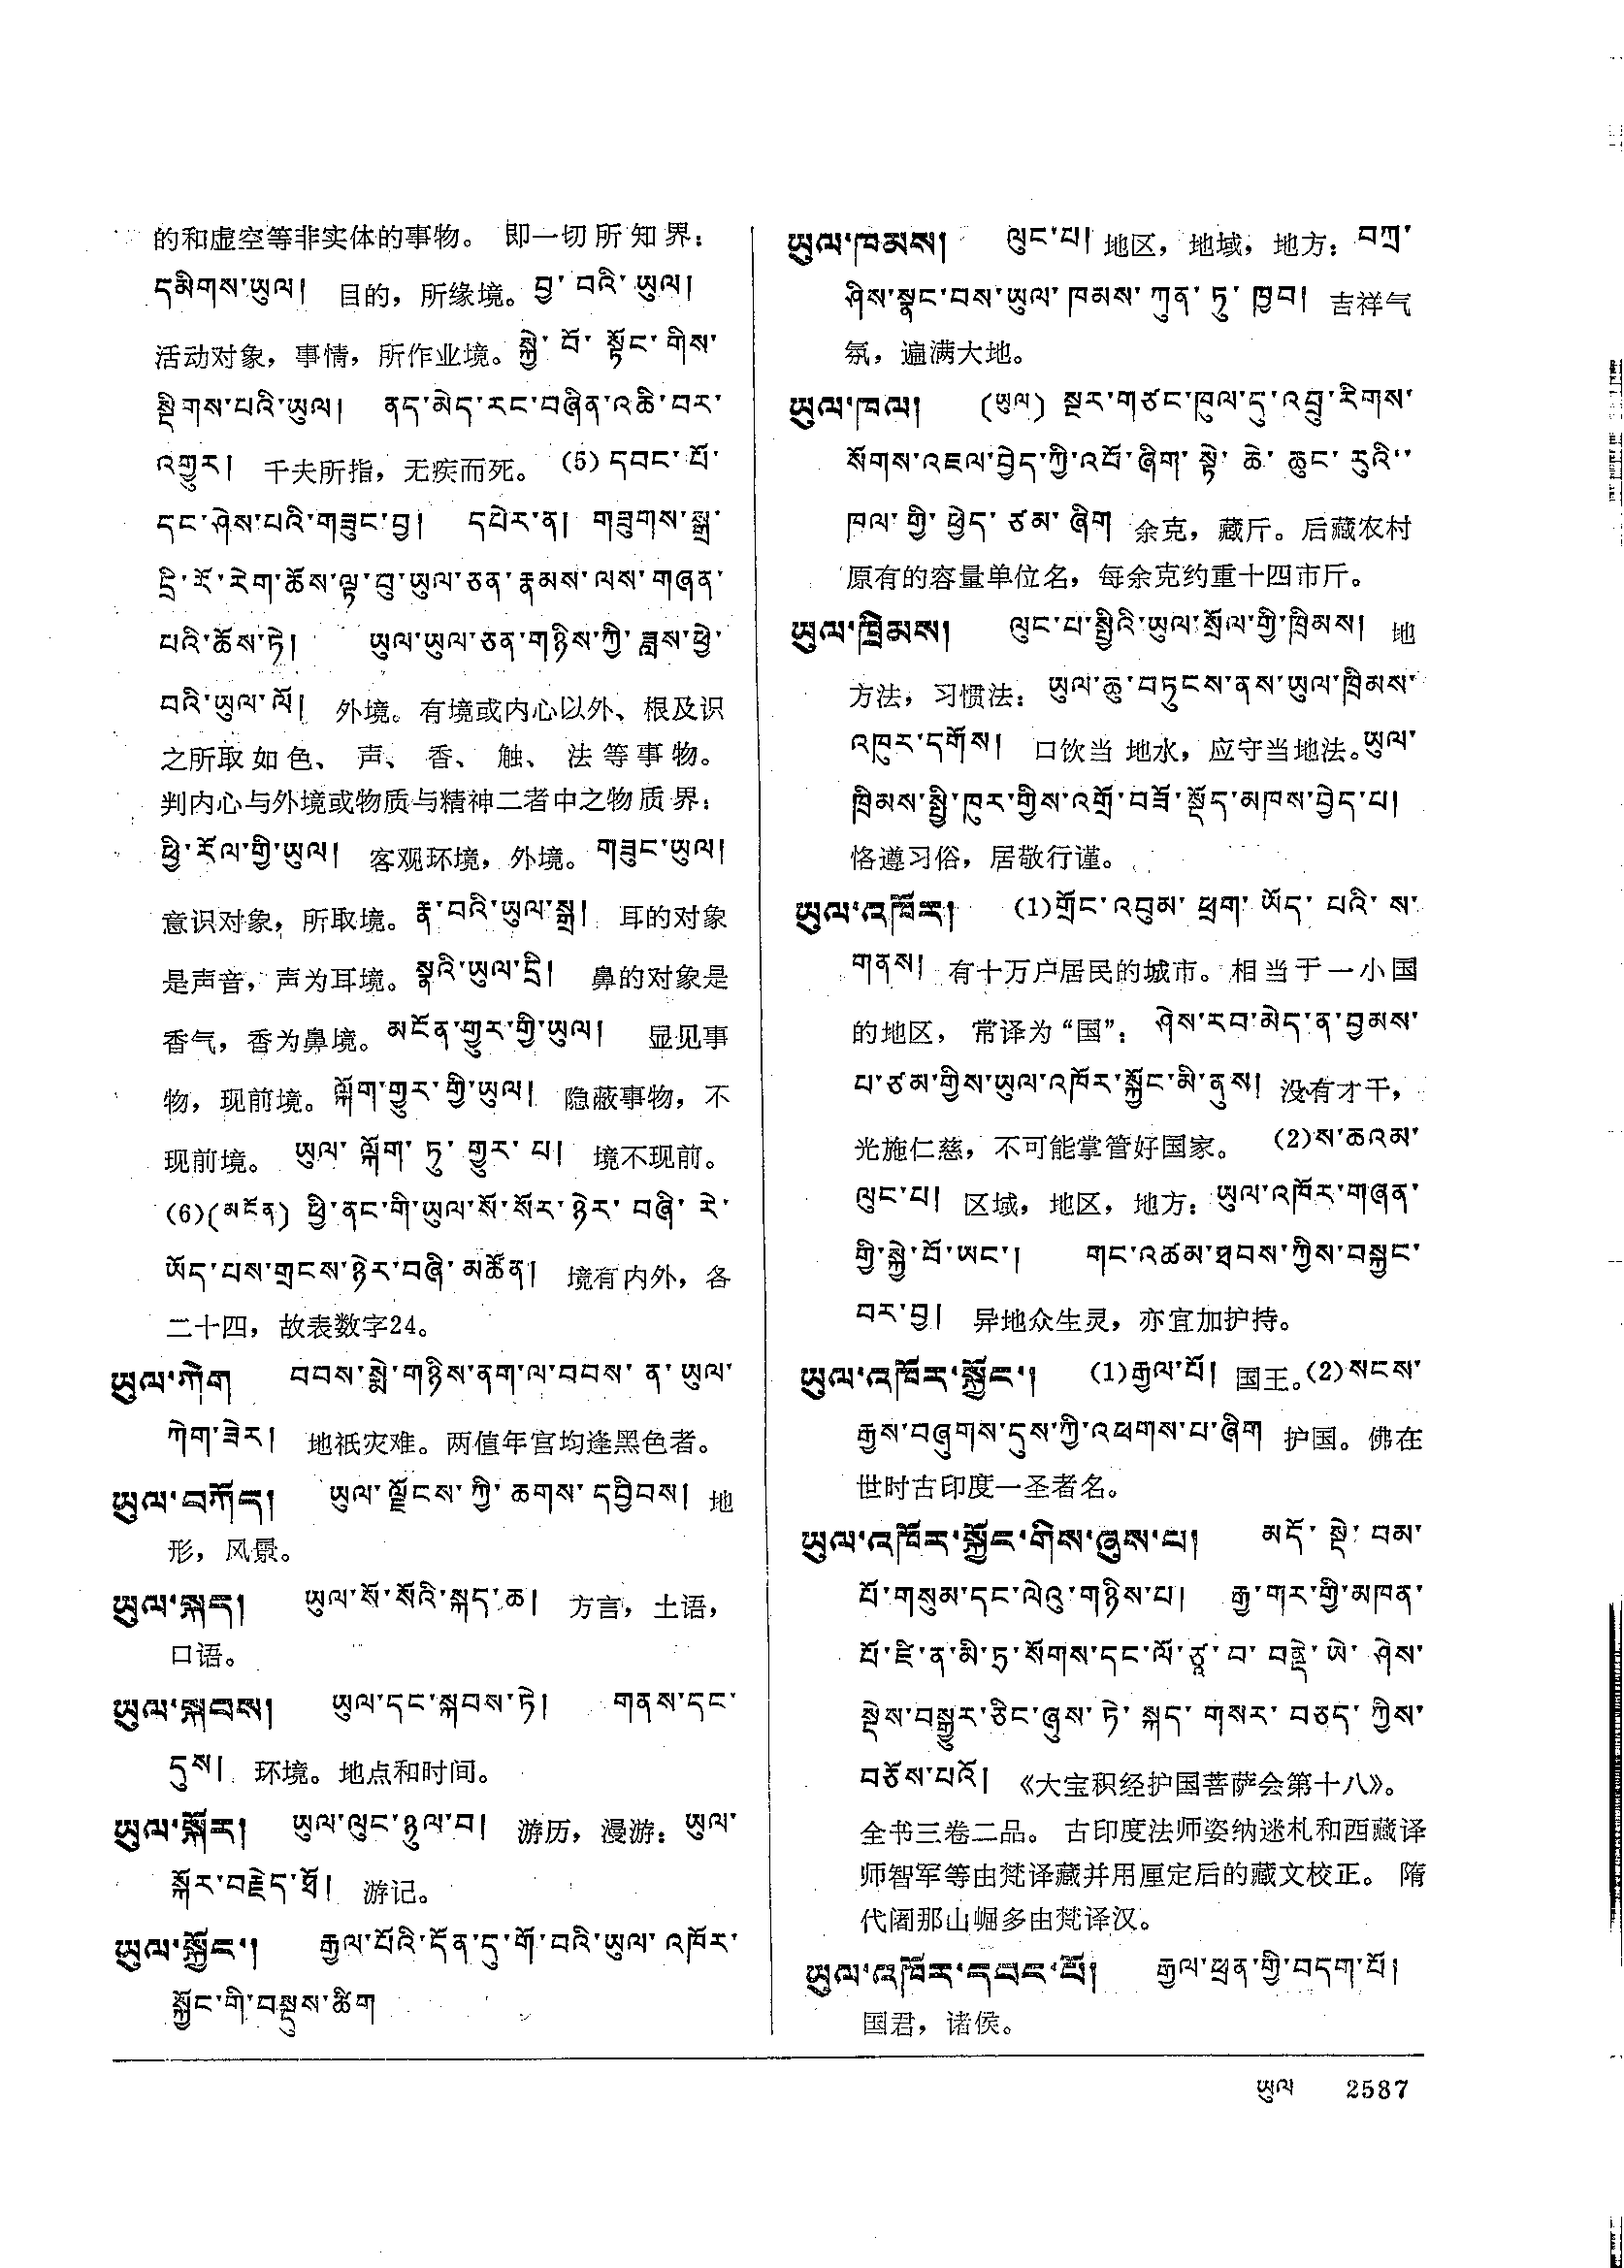 的和虚空等非实体的事物。 即一切所知界：
དམིགས་ཡུལ། 目的，所缘境。བྱ་བའི་ཡུལ།
活动对象，事情，所作业境。སྐྱེ་བོ་སྟོང་གིས་
སྡིགས་པའི་ཡུལ། ནད་མེད་རང་བཞིན་འཆི་བར་
འགྱུར། 千夫所指，无疾而死。 (5) དབང་པོ་
དང་ཤེས་པའི་གཟུང་བྱ། དཔེར་ན། གཟུགས་སྒྲ་
དྲི་རོ་རེག་ཆོས་ལྟ་བུ་ཡུལ་ཅན་རྣམས་ལས་གཞན་
པའི་ཆོས་ཏེ། ཡུལ་ཡུལ་ཅན་གཉིས་ཀྱི་ཟླས་ཕྱེ་
བའི་ཡུལ་ལོ། 外境。有境或内心以外、根及识
之所取如色、 声、 香、 触、 法等事物。
判内心与外境或物质与精神二者中之物质界：
ཕྱི་རོལ་གྱི་ཡུལ། 客观环境，外境。གཟུང་ཡུལ།
意识对象，所取境。རྣ་བའི་ཡུལ་སྒྲ། 耳的对象
是声音，声为耳境。སྣའི་ཡུལ་དྲི། 鼻的对象是
香气，香为鼻境。མངོན་གྱུར་གྱི་ཡུལ། 显见事
物，现前境。ལྐོག་གྱུར་གྱི་ཡུལ། 隐蔽事物，不
现前境。 ཡུལ་ལྐོག་ཏུ་གྱུར་པ། 境不现前。
(6)(མངོན) ཕྱི་ནང་གི་ཡུལ་སོ་སོར་ཉེར་བཞི་རེ་
ཡོད་པས་གྲངས་ཉེར་བཞི་མཚོན། 境有内外，各
二十四，故表数字24。
ཡུལ་ཀེག བབས་སྨེ་གཉིས་ནག་ལ་བབས་ན་ཡུལ་
ཀེག་ཟེར། 地祇灾难。两值年宫均逢黑色者。
ཡུལ་བཀོད། ཡུལ་ལྗོངས་ཀྱི་ཆགས་དབྱིབས། 地
形，风景。
ཡུལ་སྐད། ཡུལ་སོ་སོའི་སྐད་ཆ། 方言，土语，
口语。
ཡུལ་སྐབས། ཡུལ་དང་སྐབས་ཏེ། གནས་དང་
དུས། 环境。地点和时间。
ཡུལ་སྐོར། ཡུལ་ལུང་ཉུལ་བ། 游历，漫游：ཡུལ་
སྐོར་བརྗེད་ཐོ། 游记。
ཡུལ་སྐྱོང་། རྒྱལ་པོའི་དོན་དུ་གོ་བའི་ཡུལ་འཁོར་
སྐྱོང་གི་བསྡུས་ཚིག
ཡུལ་ཁམས། ལུང་པ། 地区，地域，地方：བཀྲ་
ཤིས་སྣང་བས་ཡུལ་ཁམས་ཀུན་ཏུ་ཁྱབ། 吉祥气
氛，遍满大地。
ཡུལ་ཁལ། (ཡུལ) སྔར་གཙང་ཁུལ་དུ་འབྲུ་རིགས་
སོགས་འཇལ་བྱེད་ཀྱི་འབོ་ཞིག་སྟེ་ཆེ་ཆུང་རུའི་
ཁལ་གྱི་ཕྱེད་ཙམ་ཞིག 余克，藏斤。后藏农村
原有的容量单位名，每余克约重十四市斤。
ཡུལ་ཁྲིམས། ལུང་པ་སྤྱིའི་ཡུལ་སྲོལ་གྱི་ཁྲིམས། 地
方法，习惯法：ཡུལ་ཆུ་བཏུངས་ནས་ཡུལ་ཁྲིམས་
འཁུར་དགོས། 口饮当地水，应守当地法。ཡུལ་
ཁྲིམས་སྤྱི་ཁུར་གྱིས་འགྲོ་བཟོ་སྡོད་མཁས་བྱེད་པ།
恪遵习俗，居敬行谨。
ཡུལ་འཁོར། (1)གྲོང་འབུམ་ཕྲག་ཡོད་པའི་ས་
གནས། 有十万户居民的城市。相当于一小国
的地区， 常译为“国”：ཤེས་རབ་མེད་ན་བྱམས་
པ་ཙམ་གྱིས་ཡུལ་འཁོར་སྐྱོང་མི་ནུས། 没有才干，
光施仁慈，不可能掌管好国家。 (2)ས་ཆའམ་
ལུང་པ། 区域，地区，地方：ཡུལ་འཁོར་གཞན་
གྱི་སྐྱེ་བོ་ཡང་། གང་འཚམ་ཐབས་ཀྱིས་བསྐྱང་
བར་བྱ། 异地众生灵，亦宜加护持。
ཡུལ་འཁོར་སྐྱོང་། (1)རྒྱལ་པོ། 国王。(2)སངས་
རྒྱས་བཞུགས་དུས་ཀྱི་འཕགས་པ་ཞིག 护国。佛在
世时古印度一圣者名。
ཡུལ་འཁོར་སྐྱོང་གིས་ཞུས་པ། མདོ་སྡེ་བམ་
པོ་གསུམ་དང་ལེའུ་གཉིས་པ། རྒྱ་གར་གྱི་མཁན་
པོ་ཛི་ན་མི་ཏྲ་སོགས་དང་ལོ་ཙཱ་བ་བནྡེ་ཡེ་ཤེས་
སྡེས་བསྒྱུར་ཅིང་ཞུས་ཏེ་སྐད་གསར་བཅད་ཀྱིས་
བཅོས་པའོ། 《大宝积经护国菩萨会第十八》。
全书三卷二品。 古印度法师姿纳迷札和西藏译
师智军等由梵译藏并用厘定后的藏文校正。 隋
代阇那山崛多由梵译汉。
ཡུལ་འཁོར་དབང་པོ། རྒྱལ་ཕྲན་གྱི་བདག་པོ།
国君，诸侯。
ཡུལ 2587